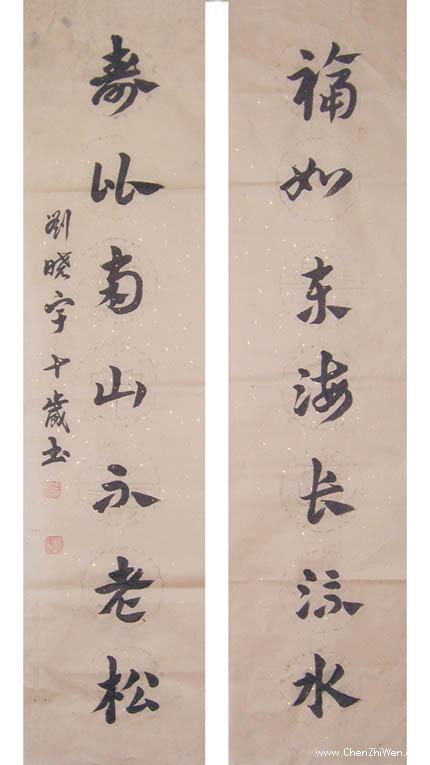 福如东海长流水
寿比南山不老松
劉晓宇十歲书
www.ChenZhiWen.c